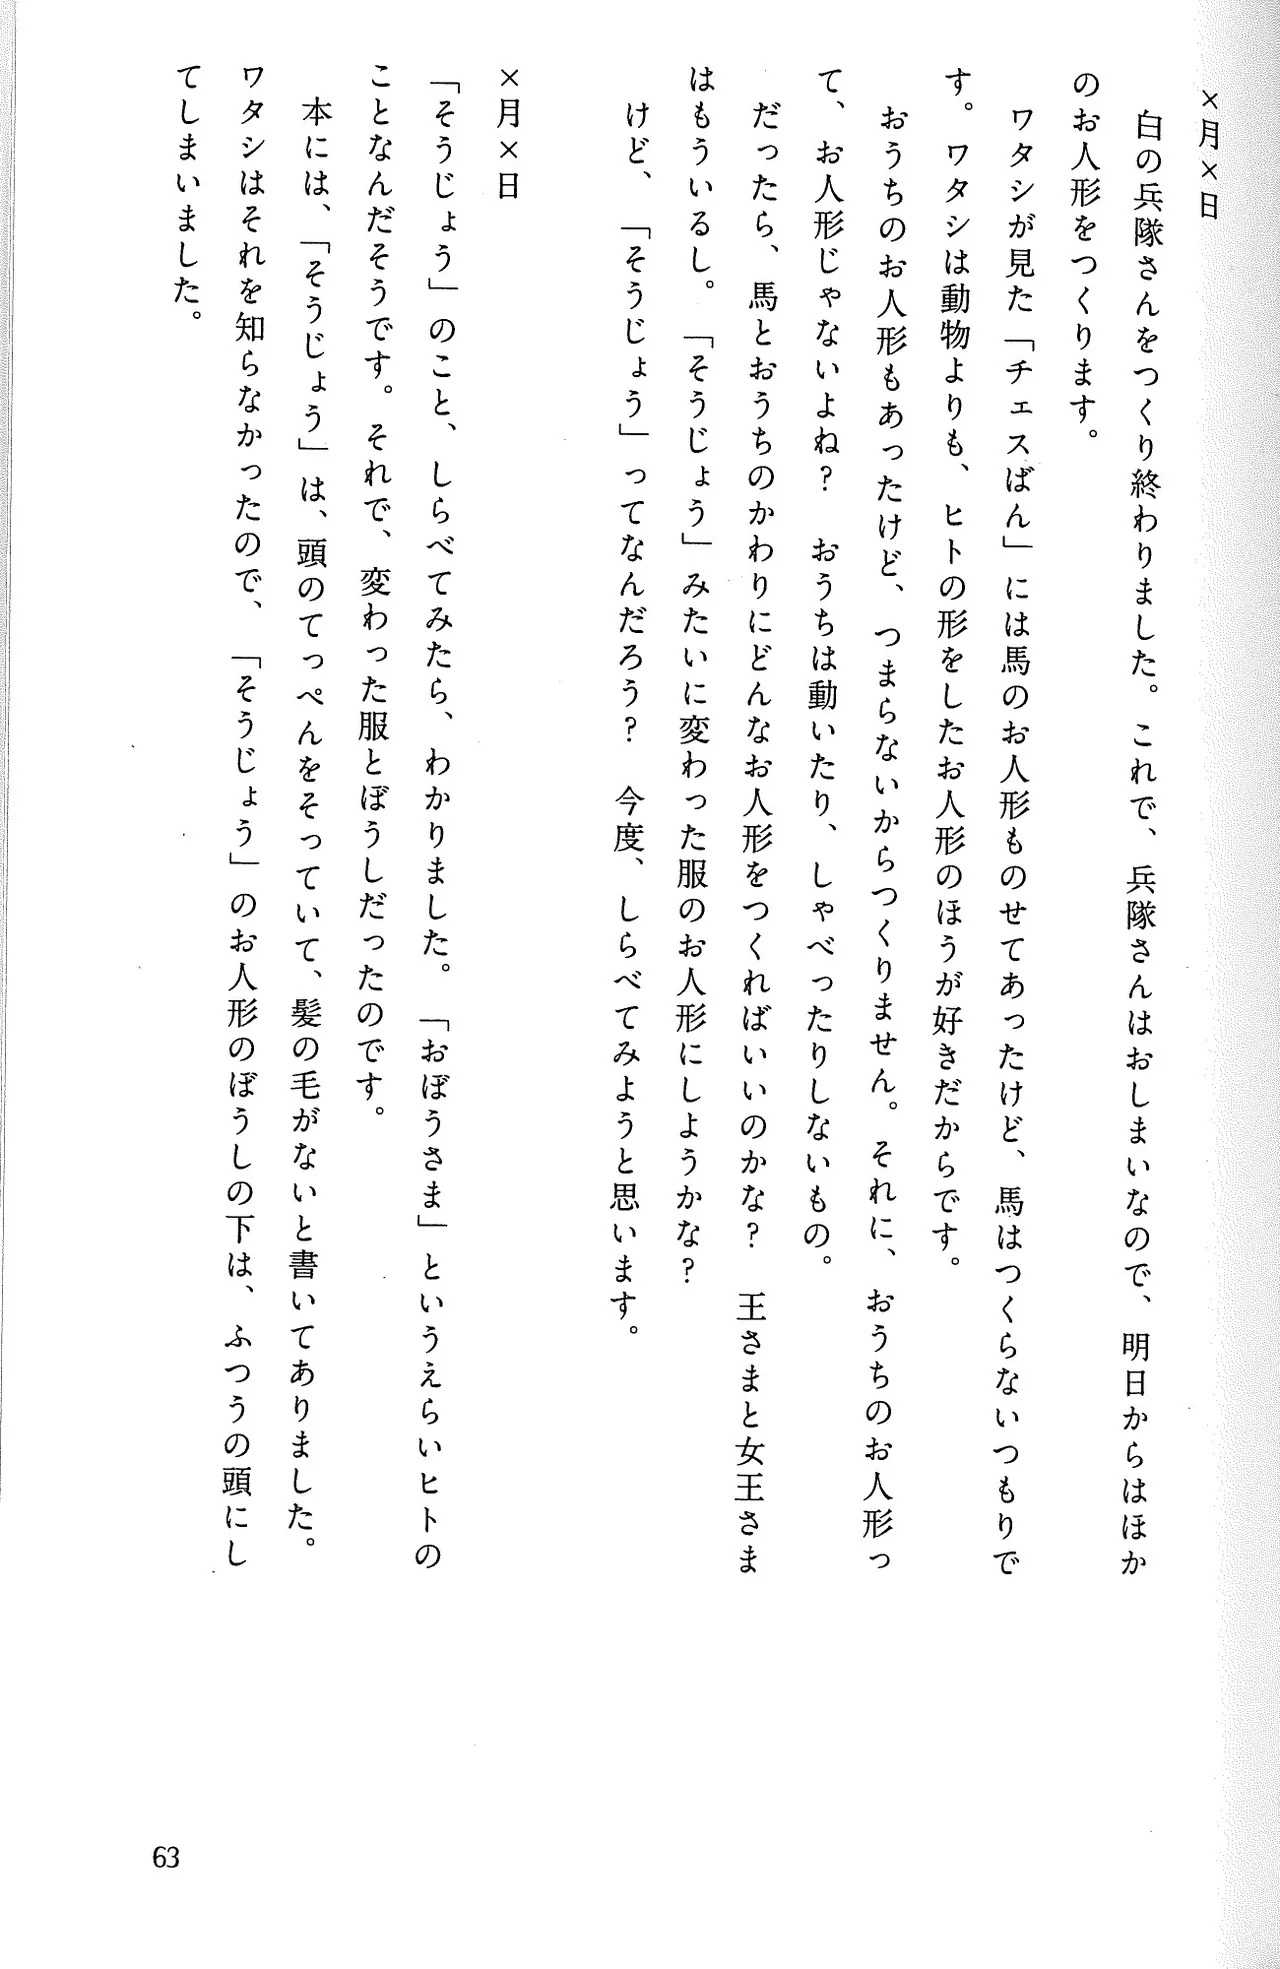 ×月×日
　白の兵隊さんをつくり終わりました。これで、兵隊さんはおしまいなので、明日からはほか
のお人形をつくります。
　ワタシが見た「チェスばん」には馬のお人形ものせてあったけど、馬はつくらないつもりで
す。ワタシは動物よりも、ヒトの形をしたお人形のほうが好きだからです。
　おうちのお人形もあったけど、つまらないからつくりません。それに、おうちのお人形っ
て、お人形じゃないよね？　おうちは動いたり、しゃべったりしないもの。
　だったら、馬とおうちのかわりにどんなお人形をつくればいいのかな？　王さまと女王さま
はもういるし。「そうじょう」みたいに変わった服のお人形にしようかな？
　けど、「そうじょう」ってなんだろう？　今度、しらべてみようと思います。
×月×日
「そうじょう」のこと、しらべてみたら、わかりました。「おぼうさま」というえらいヒトの
ことなんだそうです。それで、変わった服とぼうしだったのです。
　本には、「そうじょう」は、頭のてっぺんをそっていて、髪の毛がないと書いてありました。
ワタシはそれを知らなかったので、「そうじょう」のお人形のぼうしの下は、ふつうの頭にし
てしまいました。
63